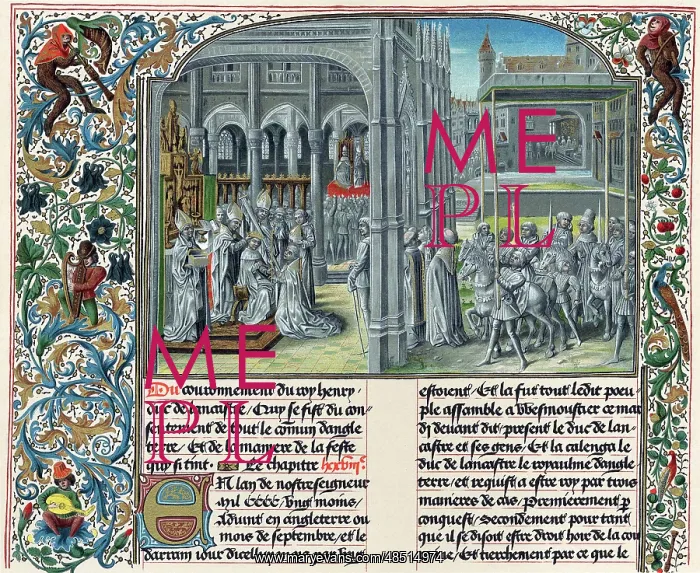 ME
PL
ME
PL
Du couronnement du roy henry
duc de lancastre / Qui se fist du con
sentement de tout le comun dangle
terre / Et de la maniere de la feste
qui si tint. Le chapitre
En lan de nostre seigneur
mil CCCC Vngt moins /
Aduint en angleterre ou
mois de septembre / et le
darrain iour dicell
estoient / Et la fut tout ledit peu
ple assamble a Wesmoustier ce mar
di deuant dit present le duc de lan
castre et ses gens / Et la calenga le
duc de lancastre le royaulme dangle
terre / et requist a estre roy par trois
manieres de cas / Premierement p
conquest / Secondement pour tant
que il se disoit estre droit hoir de la cou
ne / Et tierchement par ce que le
www.maryevans.com/48514974